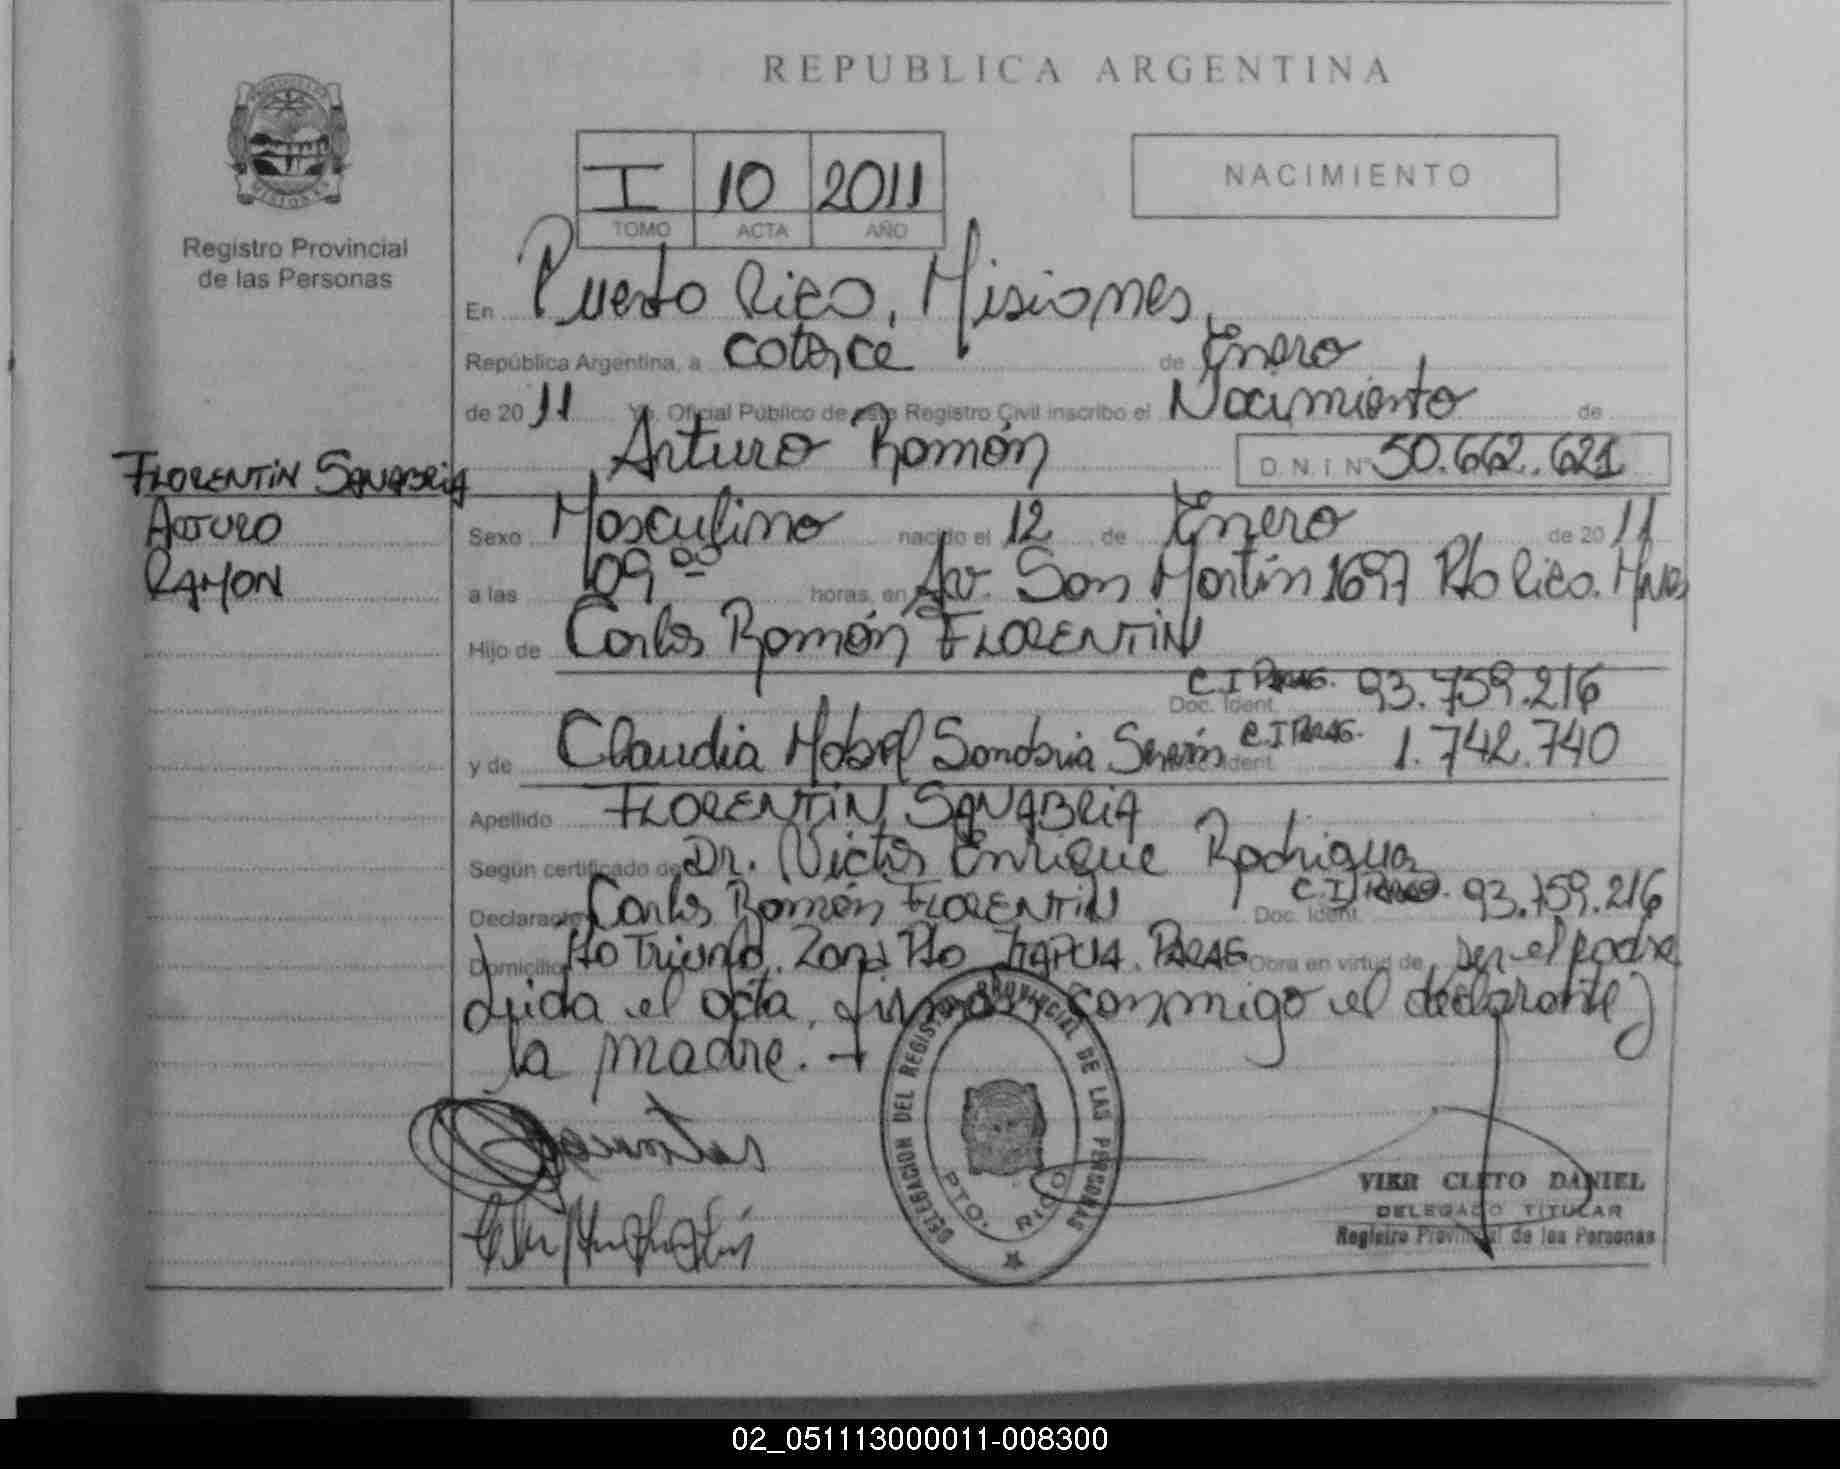 REPUBLICA ARGENTINA
I 10 2011
TOMO ACTA AÑO
NACIMIENTO
Registro Provincial
de las Personas
En Puerto Rico, Misiones,
República Argentina, a catorce de Enero
de 2011 Yo, Oficial Público de este Registro Civil inscribo el Nacimiento de
Arturo Ramón D.N.I. Nº 50.662.621
FLORENTIN SANABRIA
ARTURO
RAMON
Sexo Masculino nacido el 12 de Enero de 2011
a las 09 00 horas, en Av. San Martín 1697 Pto Rico. Mnes
Hijo de Carlos Ramón FLORENTIN
C.I PARAG. Doc. Ident. 93.759.216
y de Claudia Mabel Sanabria C.I PARAG. Doc. Ident. 1.742.740
Apellido FLORENTIN SANABRIA
Según certificado de Dr. Victor Enrique Rodriguez
Declarante Carlos Ramón FLORENTIN C.I Doc. Ident. 93.759.216
Domicilio Pto Triunfo. Zona Pto ITAPUA. PARAG Obra en virtud de ser el padre
Leida el acta, firman conmigo el declarante y
la madre.
DELEGACION DEL REGISTRO PROVINCIAL DE LAS PERSONAS
PTO. RICO
VIER CLETO DANIEL
DELEGADO TITULAR
Registro Provincial de las Personas
02_051113000011-008300